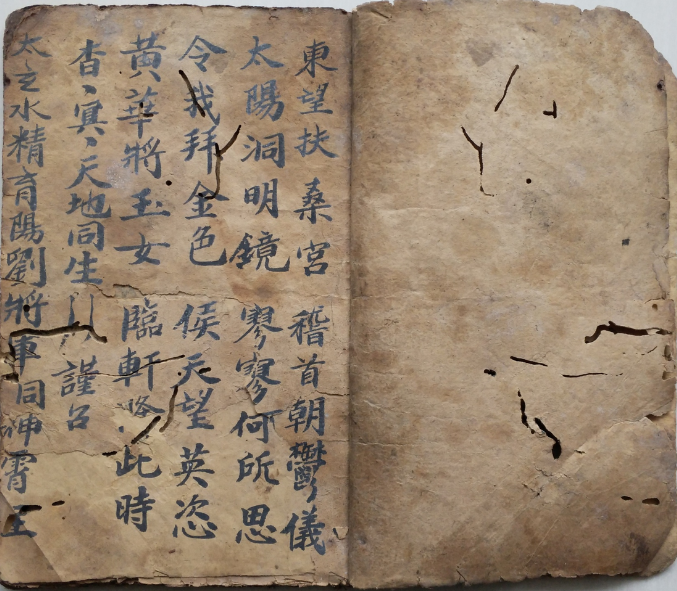 東望扶桑宮 稽首朝鬱儀
太陽洞明鏡 寥寥何所思
令我拜金色 侯天望英恣
黃華將玉女 臨軒降此時
杳丶冥丶天地同生 謹召
太玄水精育陽劉將軍同神霄玉